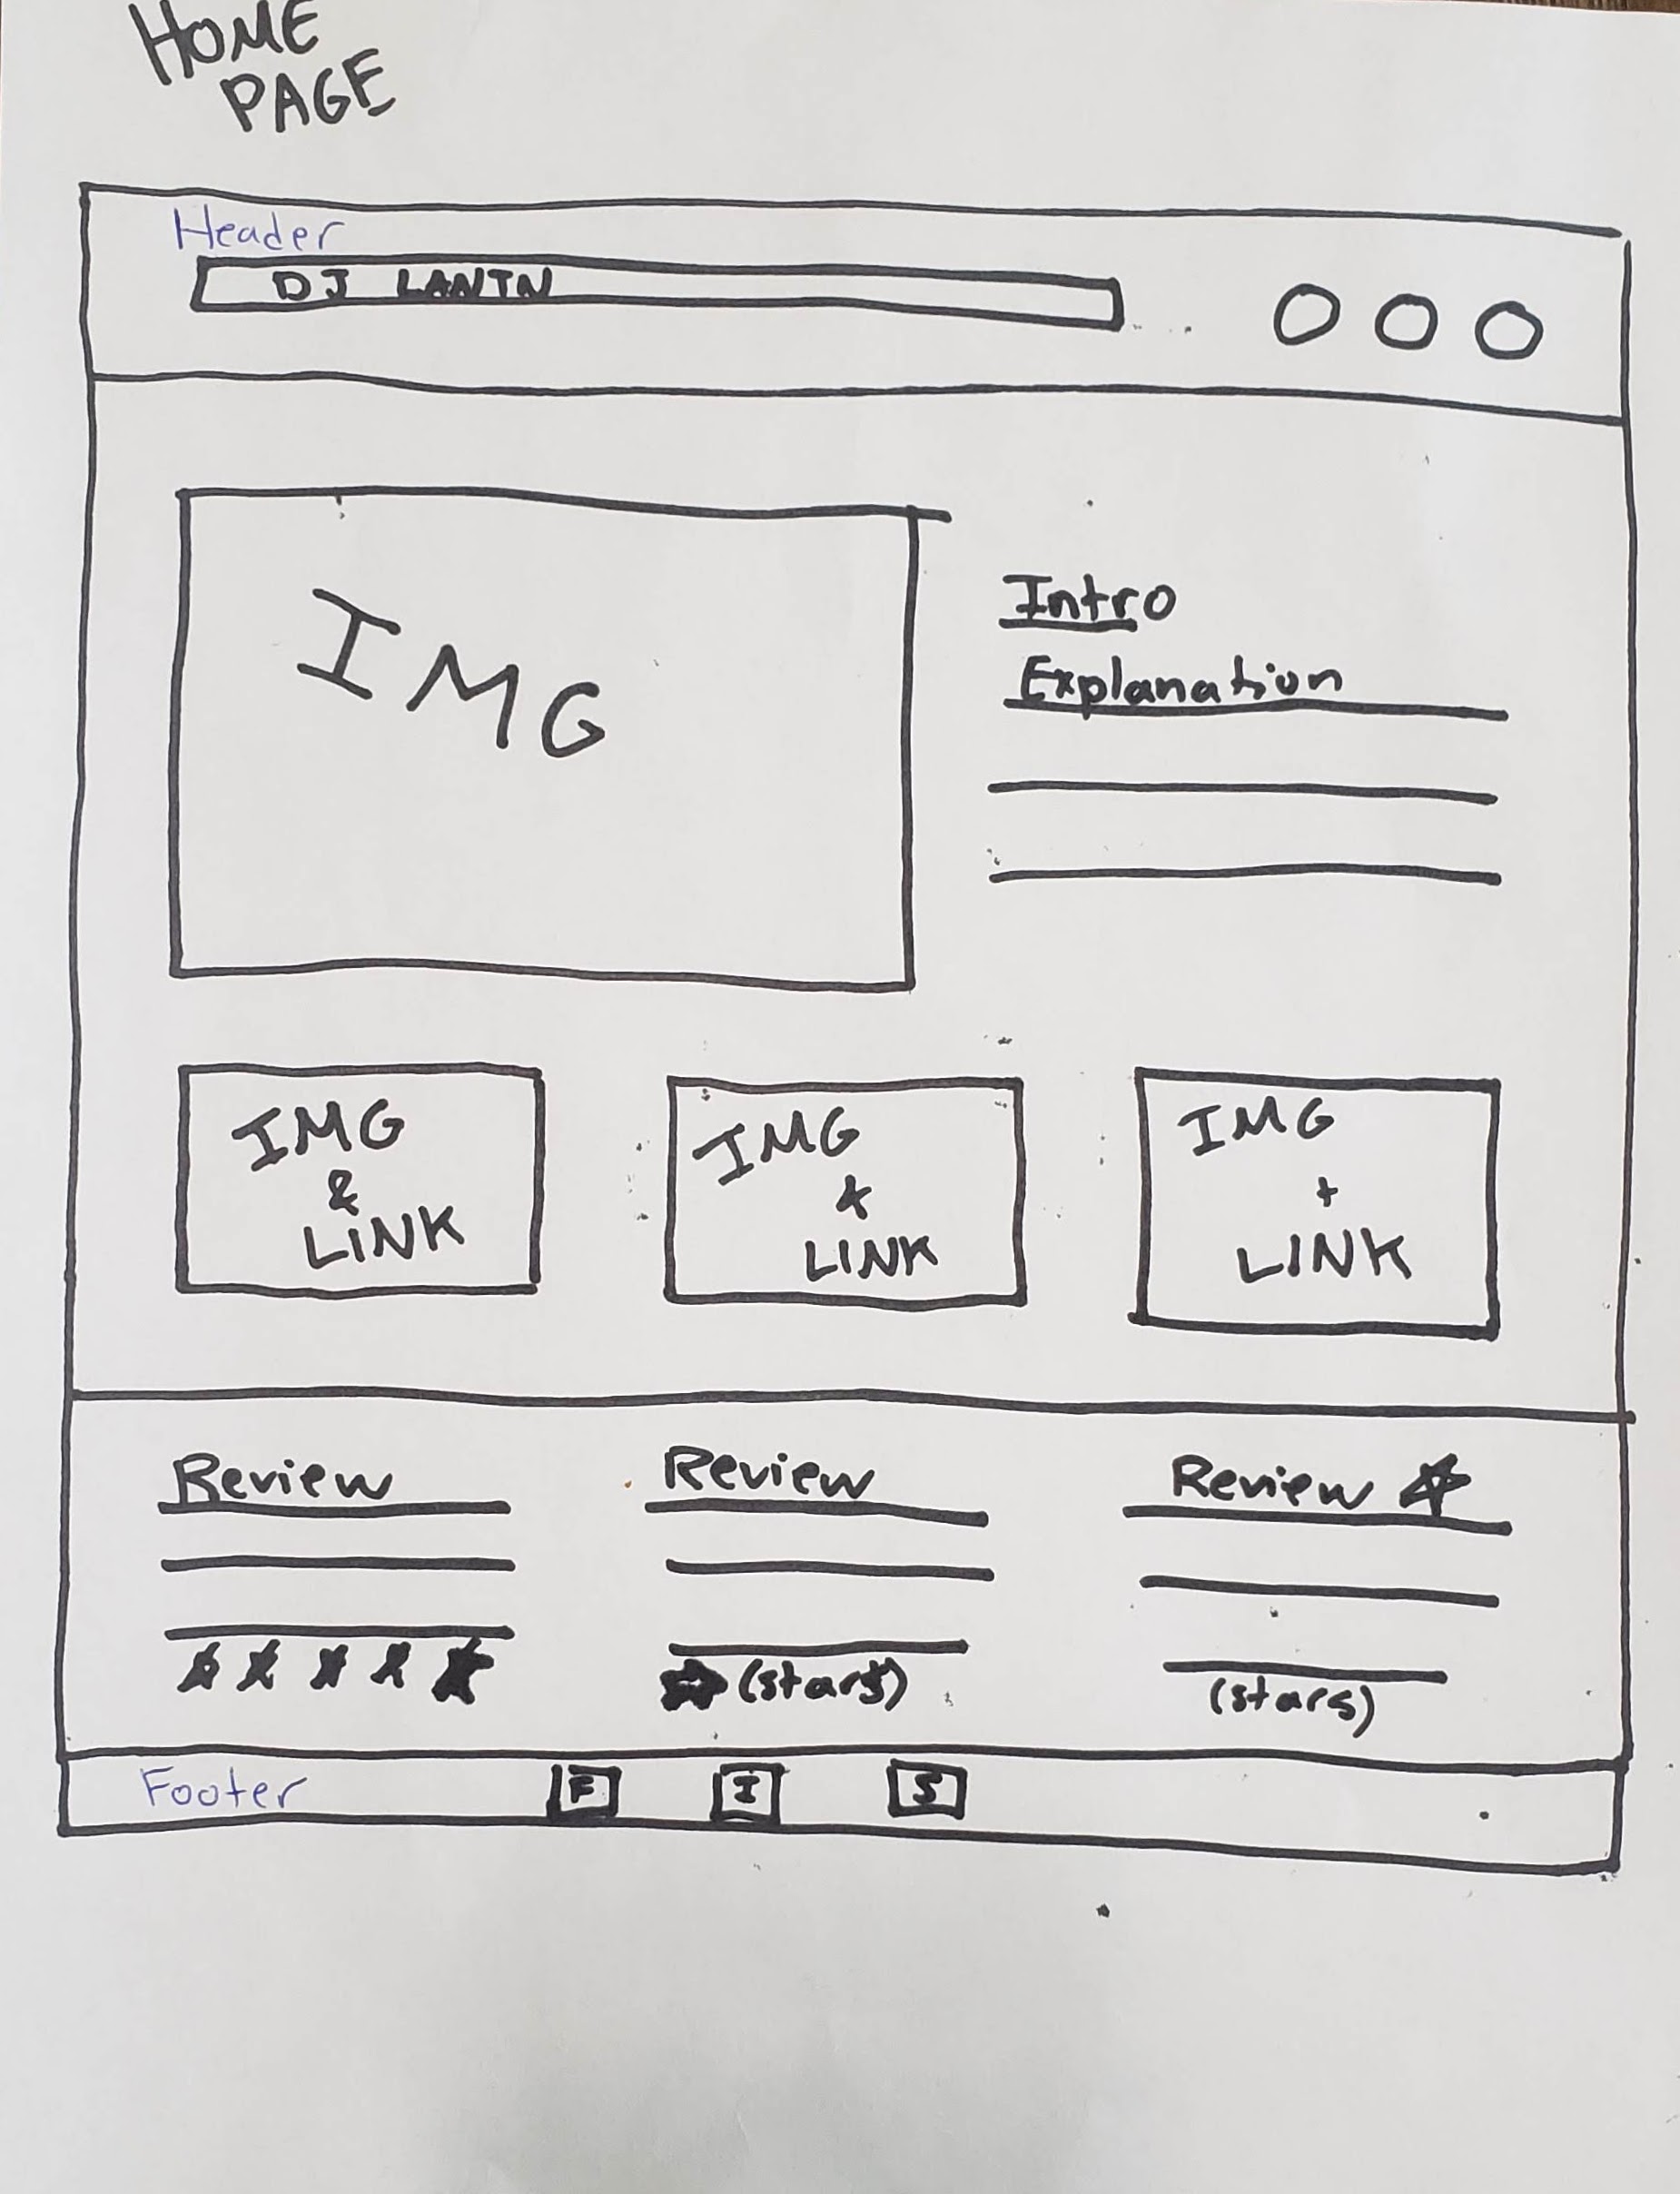 HOME
PAGE
Header
DJ LANTN
IMG
Intro
Explanation
IMG
&
LINK
IMG
&
LINK
IMG
+
LINK
Review
Review
Review
(stars)
(stars)
Footer
F
I
S